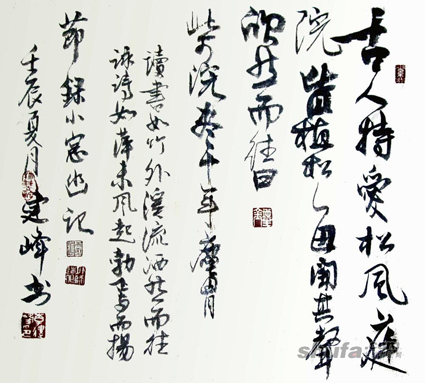 古人特愛松風庭
院皆植松每聞其聲
欣然而往曰
此可浣盡十年塵胃
讀書如竹外溪流洒然而往
詠詩如蘋末風起勃焉而揚
節録小窓幽記
壬辰夏月峰书